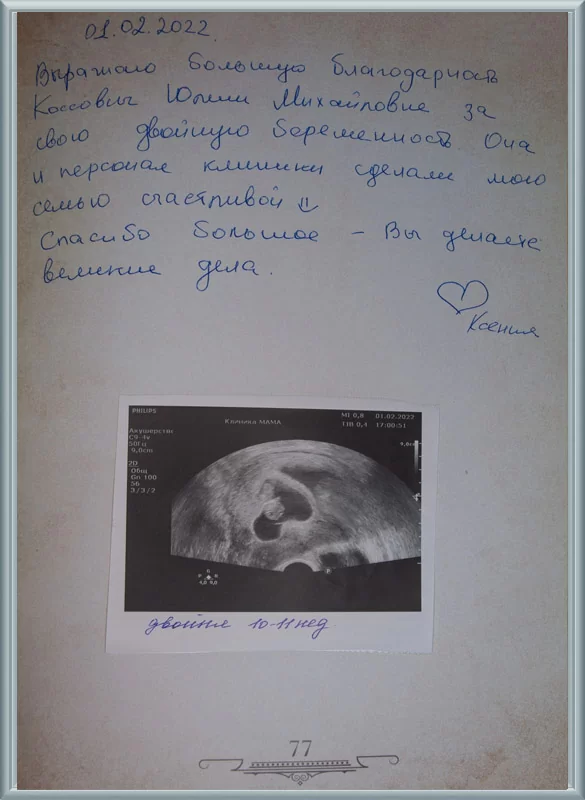 01.02.2022
Выражаю большую благодарность
Коссович Юлии Михайловне за
свою двойную беременность. Она
и персонал клиники сделали мою
семью счастливой
Спасибо большое – Вы делаете
великие дела.
Ксения
PHILIPS
Клиника МАМА
MI 0,8 01.02.2022
TIB 0,4 17:00:51
Акушерстн
C9-4v
50Гц
9,0cm
2D
Общ
Gn 100
56
3/3/2
двойня 10-11 нед
77